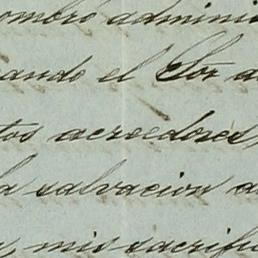 ombró adminis
ando el Sor a
tos acreedores,
la salvacion d
, mis sacrifi